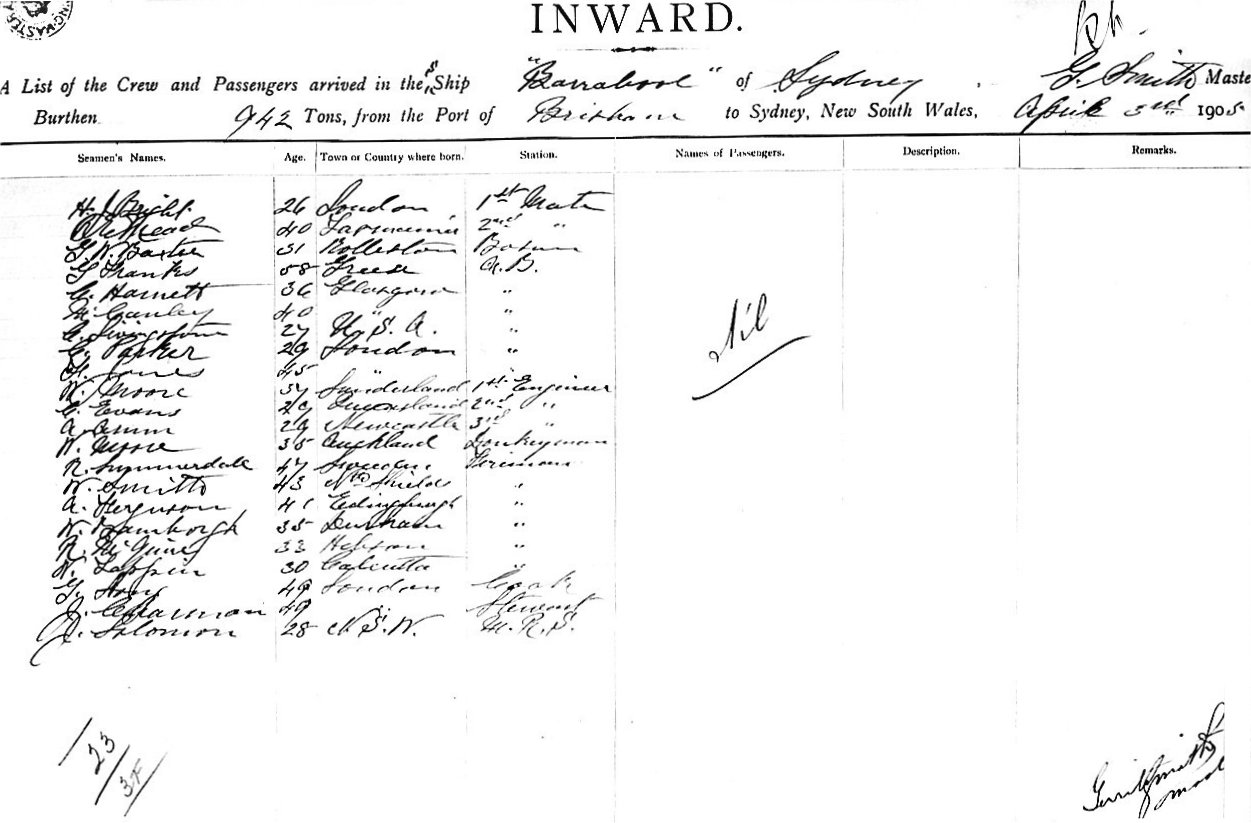 INWARD.
A List of the Crew and Passengers arrived in the S Ship "Barrabool" of Sydney G. Smith Maste
Burthen 942 Tons, from the Port of Brisbane to Sydney, New South Wales, April 3rd 1905
Seamen's Names. Age. Town or Country where born. Station. Names of Passengers. Description. Remarks.
H. J. Bright 26 London 1st Mate
Mead 40 2nd "
G. W. Baxter 31 Rolleston Bosun
G. Franks 58 Greece A.B.
Hamett 36 Glasgow "
40 " "
A. Livingstone 27 U.S.A. "
G. Parker 29 London "
H. Jones 45 "
W. Moore 37 Sunderland 1st Engineer
E. Evans 29 Queensland 2nd "
A. 29 Newcastle 3rd "
W. 35 Auckland Donkeyman
R. Summerdale 47 Sweden Fireman
W. Smith 43 Nth Shields "
A. Ferguson 41 Edingburgh "
W. Bamborgh 35 Durham "
R. 33 "
W. 30 Calcutta "
G. 49 London Cook
J. Chairman 49 " Steward
J. Solomon 28 N.S.W. M.R.S.
Nil
23